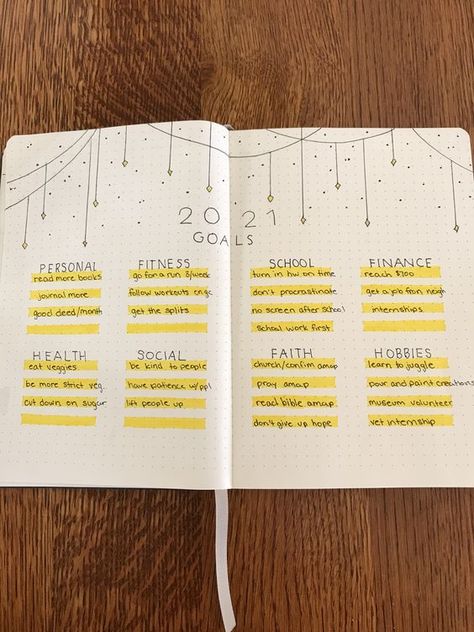 2021
GOALS
PERSONAL
read more books
journal more
good deed/month
FITNESS
go for a run 3/week
follow workouts on
get the splits
HEALTH
eat veggies
be more strict veg.
cut down on sugar
SOCIAL
be kind to people
have patience w/ppl
lift people up
SCHOOL
turn in hw on time
don't procrastinate
no screen after school
school work first
FINANCE
reach $700
get a job from
internships
FAITH
church/confirm amap
pray amap
read bible amap
don't give up hope
HOBBIES
learn to juggle
pour and paint creations
museum volunteer
vet internship